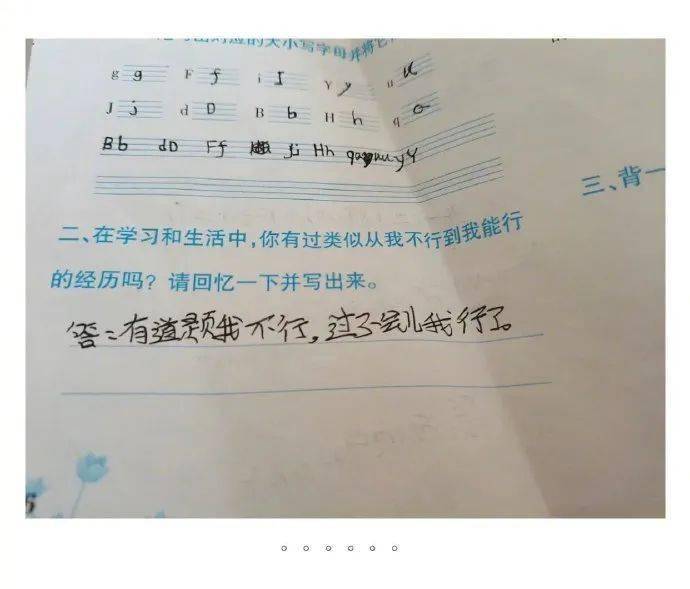 出对应的大小写字母并将它
g g F f i I Y y u u
J j d D B b H h q a
Bb dD Ff Jj Hh
三、背一
二、在学习和生活中,你有过类似从我不行到我能行
的经历吗? 请回忆一下并写出来。
答:有道题我不行,过了会儿我行了。
。。。。。。